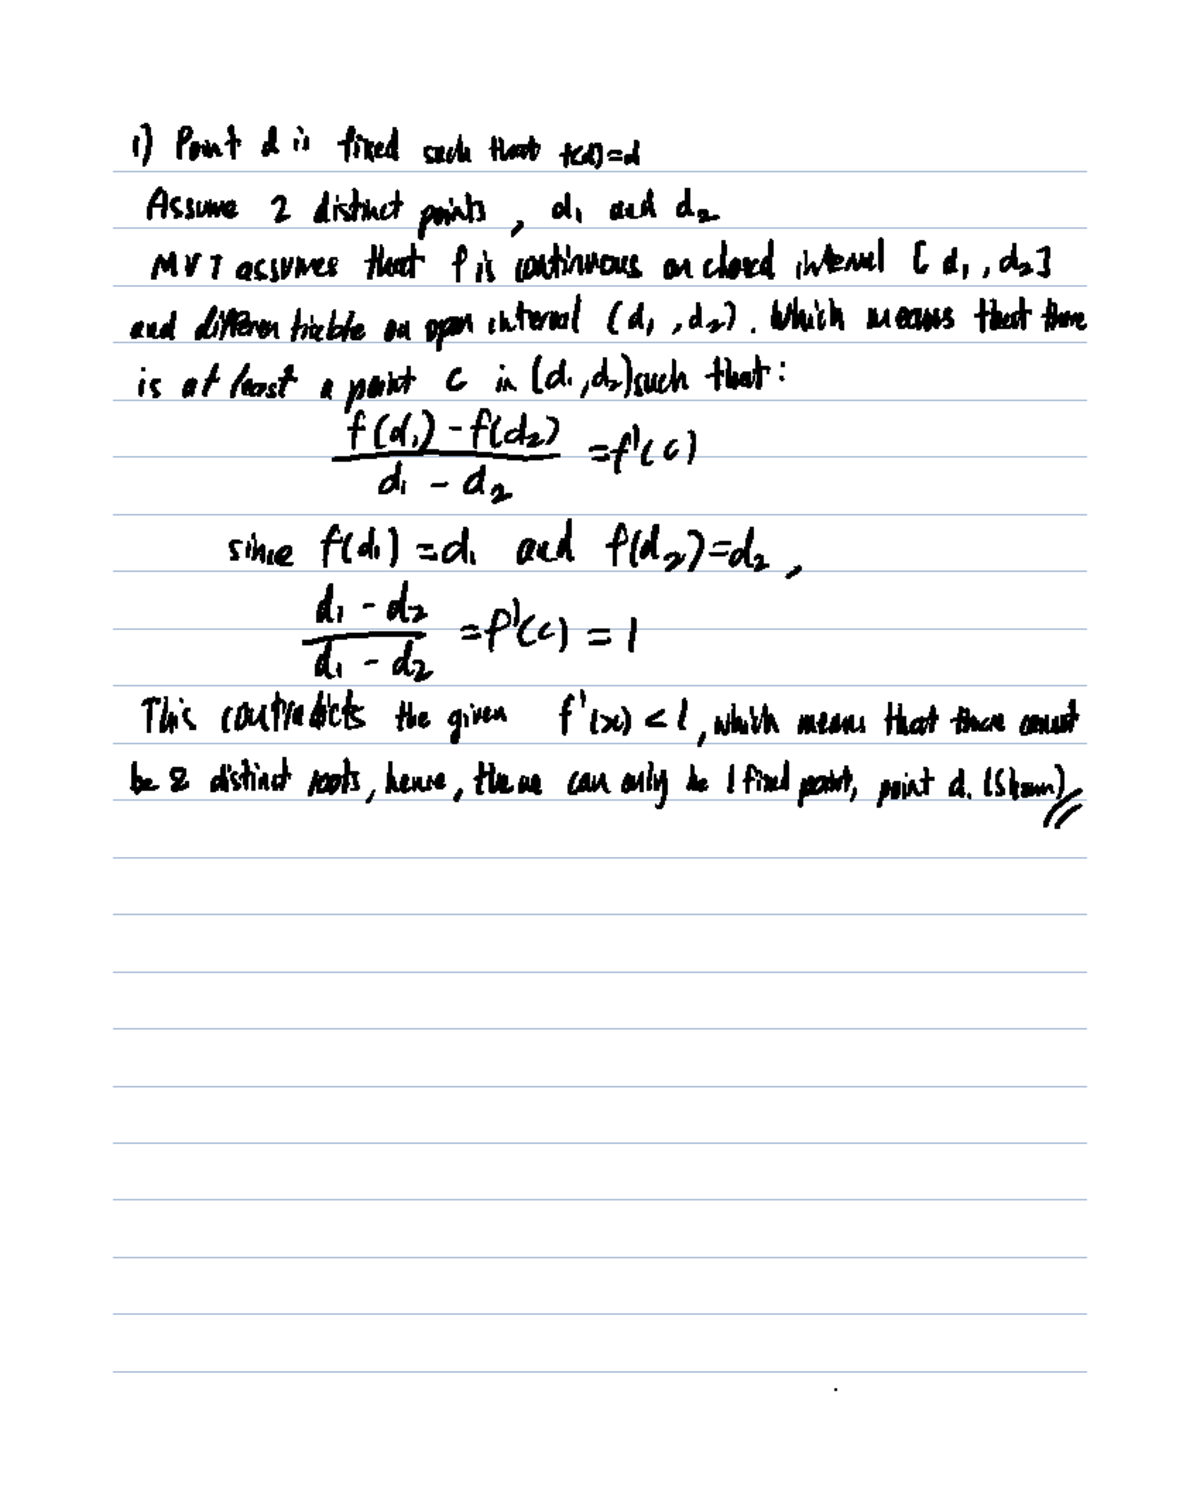 1) Point d is fixed such that f(d)=d
Assume 2 distinct points, d₁ and d₂
MVT assumes that f is continuous on closed interval [d₁, d₂]
and differentiable on open interval (d₁, d₂). Which means that there
is at least a point c in (d₁, d₂) such that:
f(d₁) - f(d₂)
/ d₁ - d₂ = f'(c)
since f(d₁) = d₁ and f(d₂) = d₂,
d₁ - d₂
/ d₁ - d₂ = f'(c) = 1
This contradicts the given f'(x) < 1, which means that there cannot
be 2 distinct roots, hence, there can only be 1 fixed point, point d. (Shown)